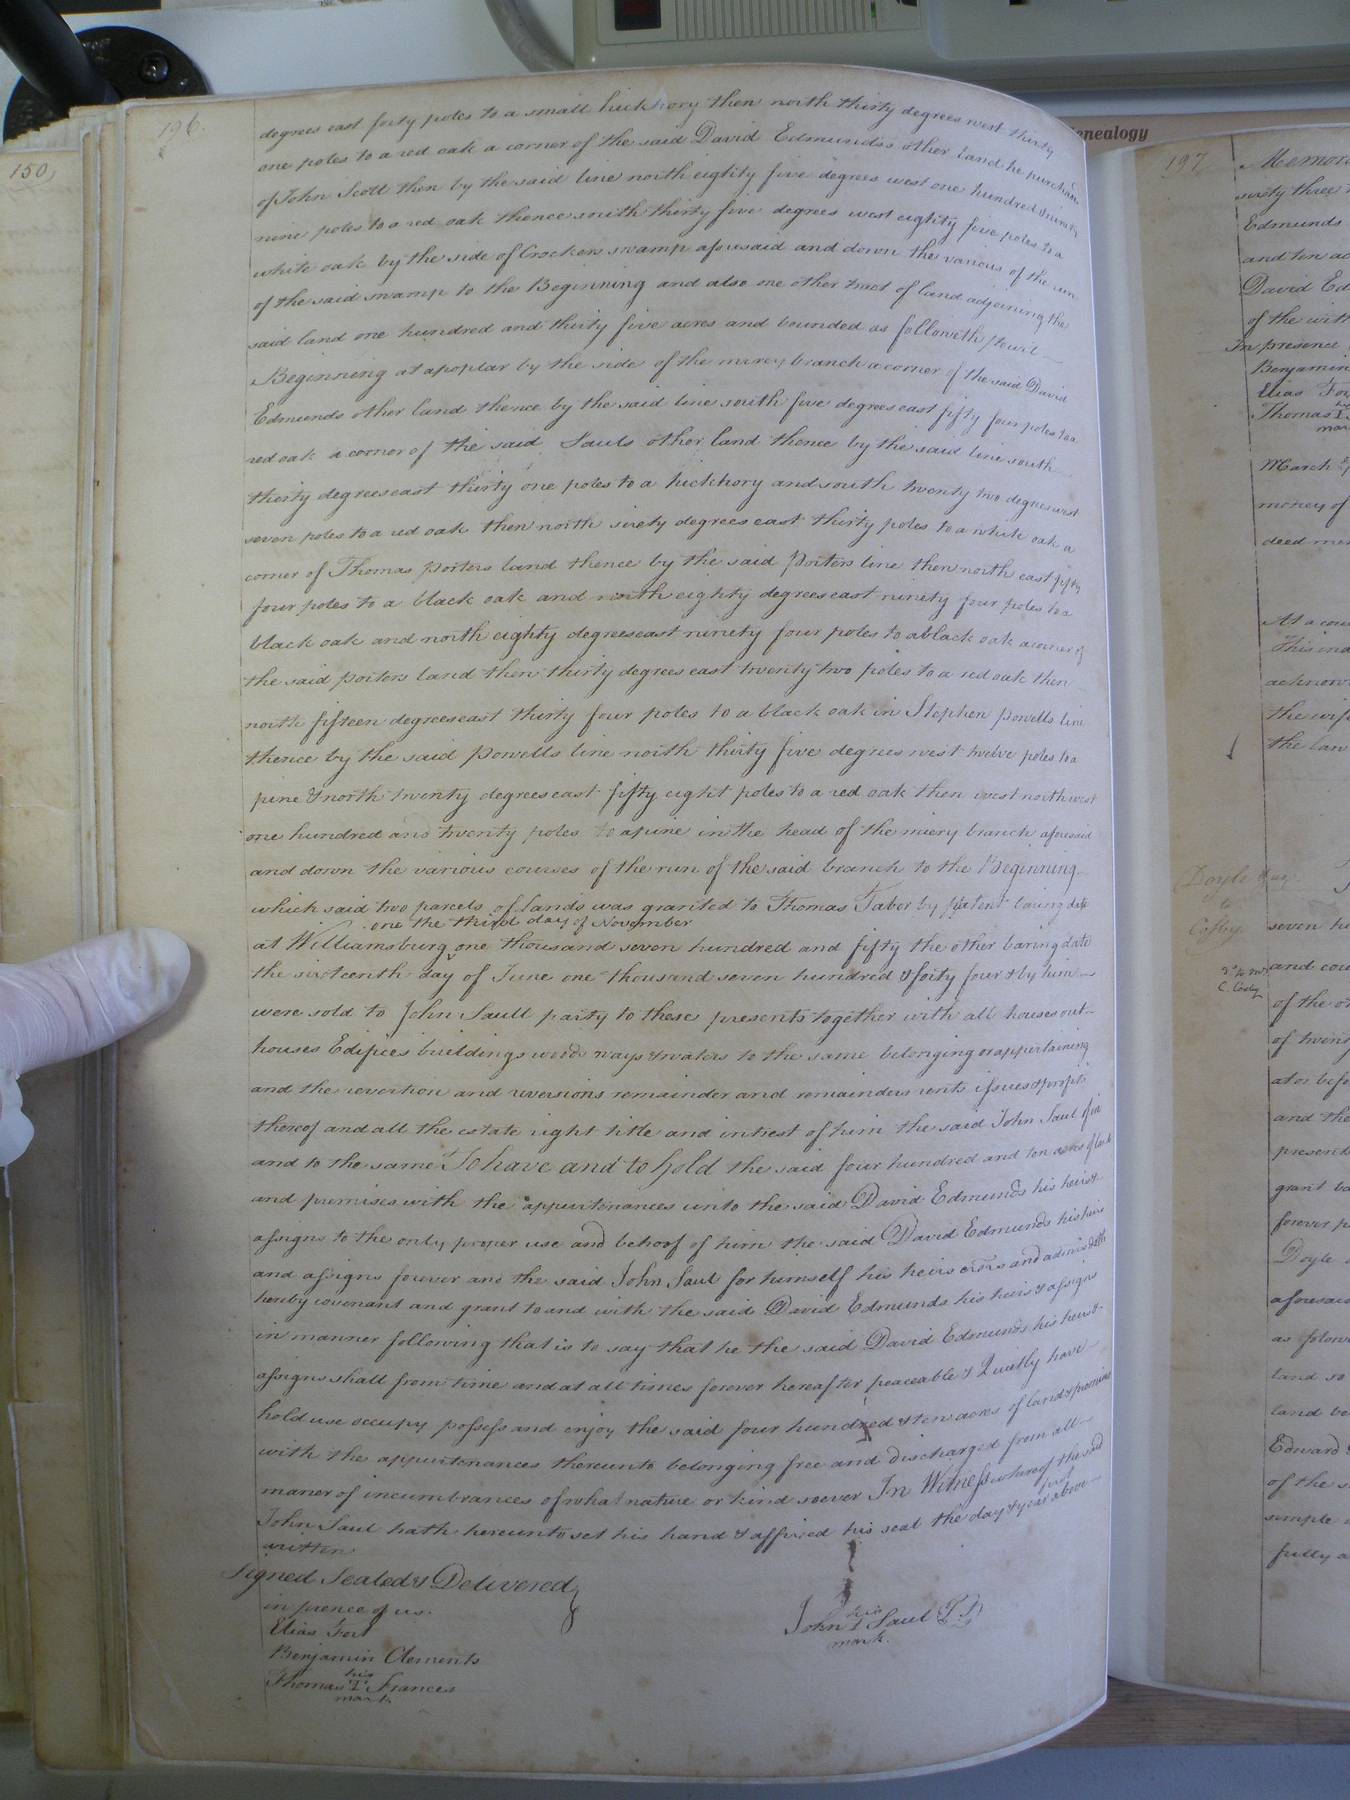 150
196.
degrees east forty poles to a small hickhory then north thirty degrees west thirty
one poles to a red oak a corner of the said David Edmunds's other land he purchas
of John Scott then by the said line north eighty five degrees west one hundred & ninety
nine poles to a red oak thence south thirty five degrees west eighty five poles to a
white oak by the side of Crockers swamp aforesaid and down the various of the run
of the said swamp to the Beginning and also one other tract of land adjoining the
said land one hundred and thirty five acres and bounded as followeth towit
Beginning at apoplar by the side of the mirey branch a corner of the said David
Edmunds other land thence by the said line south five degrees east fifty four poles to a
red oak a corner of the said Sauls other land thence by the said line south
thirty degrees east thirty one poles to a hickhory and south twenty two degrees west
seven poles to a red oak then north sixty degrees east thirty poles to a white oak a
corner of Thomas Porters land thence by the said Porters line then north east fifty
four poles to a black oak and north eighty degrees east ninety four poles to a
black oak and north eighty degrees east ninety four poles to a black oak a corner of
the said Porters land then thirty degrees east twenty two poles to a red oak then
north fifteen degrees east thirty four poles to a black oak in Stephen Powells line
thence by the said Powells line north thirty five degrees west twelve poles to a
pine & north twenty degrees east fifty eight poles to a red oak then west north west
one hundred and twenty poles to apine in the head of the miery branch aforesaid
and down the various courses of the run of the said branch to the Beginning
which said two parcels of lands was granted to Thomas Tabor by patent baring date
one the third day of November
at Williamsburg one thousand seven hundred and fifty the other baring date
the sixteenth day of June one thousand seven hundred & forty four & by him
were sold to John Saull party to these presents together with all houses out-
houses Edifices buildings woods ways & waters to the same belonging or appertaining
and the revertion and reversions remainder and remainders rents issues & profits
thereof and all the estate right title and intrest of him the said John Saul of in
and to the same To have and to hold the said four hundred and ten acres of land
and premises with the appurtenances unto the said David Edmunds his heirs &
assigns to the only proper use and behoof of him the said David Edmunds his heirs
and assigns forever and the said John Saul for himself his heirs exors and admors doth
hereby covenant and grant to and with the said David Edmunds his heirs & assigns
in manner following that is to say that he the said David Edmunds his heirs &
assigns shall from time and at all times forever hereafter peaceable & Quietly have
hold use occupy possess and enjoy the said four hundred & ten acres of land & premises
with the appurtenances thereunto belonging free and discharged from all
maner of incumbrances of what nature or kind soever In Witness whereof the said
John Saul hath hereunto set his hand & affixed his seal the day & year first above
written
Signed Sealed & Delivered
in prence of us.
Elias Fort
Benjamin Clements
his
Thomas T Frances
mark
his
John I Saul
mark.
enealogy
197
Memor
sixty three
Edmunds
and ten ac
David Ed
of the wit
In presence
Benjamin
Elias For
Thomas
mar
March
money of
deed men
At a cou
This ind
acknow
the wif
the law
Doyle
to
Cosby
seven hu
C. Cosby
and cou
of the o
of twent
ator befo
and the
present
grant ba
forever p
Doyle
aforesaid
as follow
land so
land be
Edward
of the s
simple
fully a